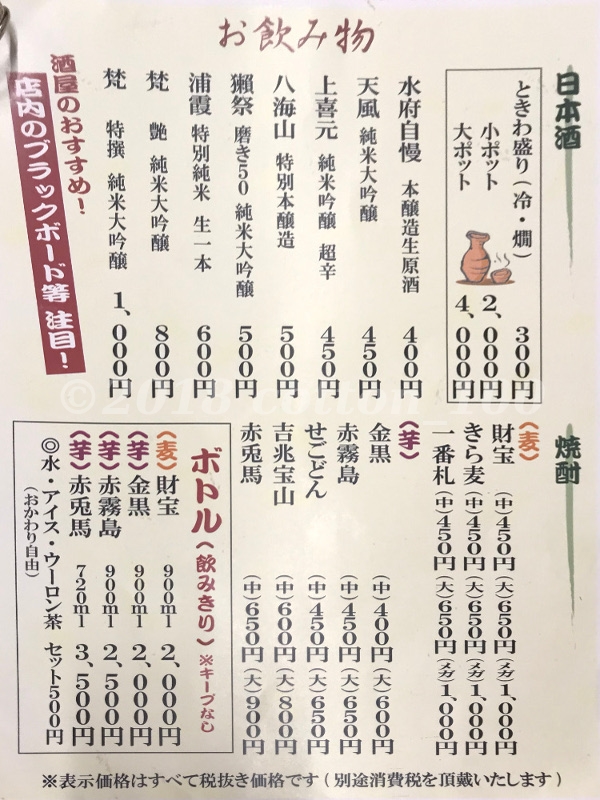 お飲み物
日本酒
ときわ盛り(冷・燗) 300円
小ポット 2,000円
大ポット 4,000円
水府自慢 本醸造生原酒 400円
天風 純米大吟醸 450円
上喜元 純米吟醸 超辛 450円
八海山 特別本醸造 500円
獺祭 磨き50 純米大吟醸 500円
浦霞 特別純米 生一本 600円
梵 艶 純米大吟醸 800円
梵 特撰 純米大吟醸 1,000円
酒屋のおすすめ!
店内のブラックボード等 注目!
焼酎
〈麦〉
財宝 (中)450円 (大)650円 (メガ)1,000円
きら麦 (中)450円 (大)650円 (メガ)1,000円
一番札 (中)450円 (大)650円 (メガ)1,000円
〈芋〉
金黒 (中)400円 (大)600円
赤霧島 (中)450円 (大)650円
せごどん (中)450円 (大)650円
吉兆宝山 (中)600円 (大)800円
赤兎馬 (中)650円 (大)900円
ボトル〈飲みきり〉※キープなし
〈麦〉財宝 900ml 2,000円
〈芋〉金黒 900ml 2,000円
〈芋〉赤霧島 900ml 2,500円
〈芋〉赤兎馬 720ml 3,500円
◎水・アイス・ウーロン茶 セット500円
(おかわり自由)
※表示価格はすべて税抜き価格です(別途消費税を頂戴いたします)